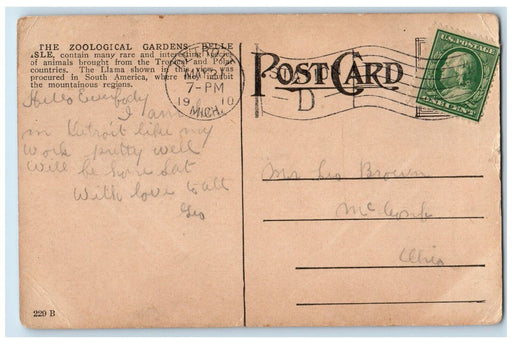 THE ZOOLOGICAL GARDENS, BELLE
ISLE, contain many rare and interesting
of animals brought from the Tropical and Polar
countries. The Llama shown in this view was
procured in South America, where they inhabit
the mountainous regions.
Hello Everybody
I am
in Detroit like my
work pretty well
will be home Sat
With love to all
Geo
MAY 21
7-PM
1910
MICH.
D
POST CARD
U.S. POSTAGE
ONE CENT
Geo Brown
Mc
Ohio
229 B